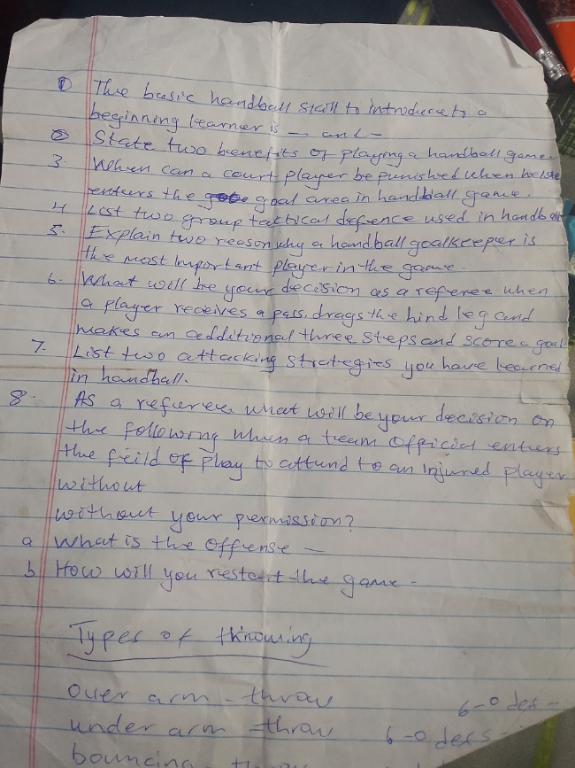 ① The basic handball skill to introduce to a
beginning learner is — and —
② State two benefits of playing a handball game
3 When can a court player be punished when he/she
enters the goal area in handball game.
4 List two group tactical defence used in handball
5. Explain two reason why a handball goalkeeper is
the most important player in the game
6. What will be your decision as a referee when
a player receives a pass, drags the hind leg and
makes an additional three steps and score a goal
7. List two attacking strategies you have learned
in handball.
8. As a referee what will be your decision on
the following when a team official enters
the feild of play to attend to an injured player
without
without your permission?
a What is the offense —
b How will you restart the game -
Types of throwing
over arm - throw 6-0 des -
under arm - throw 6-0 defs -
bouncing